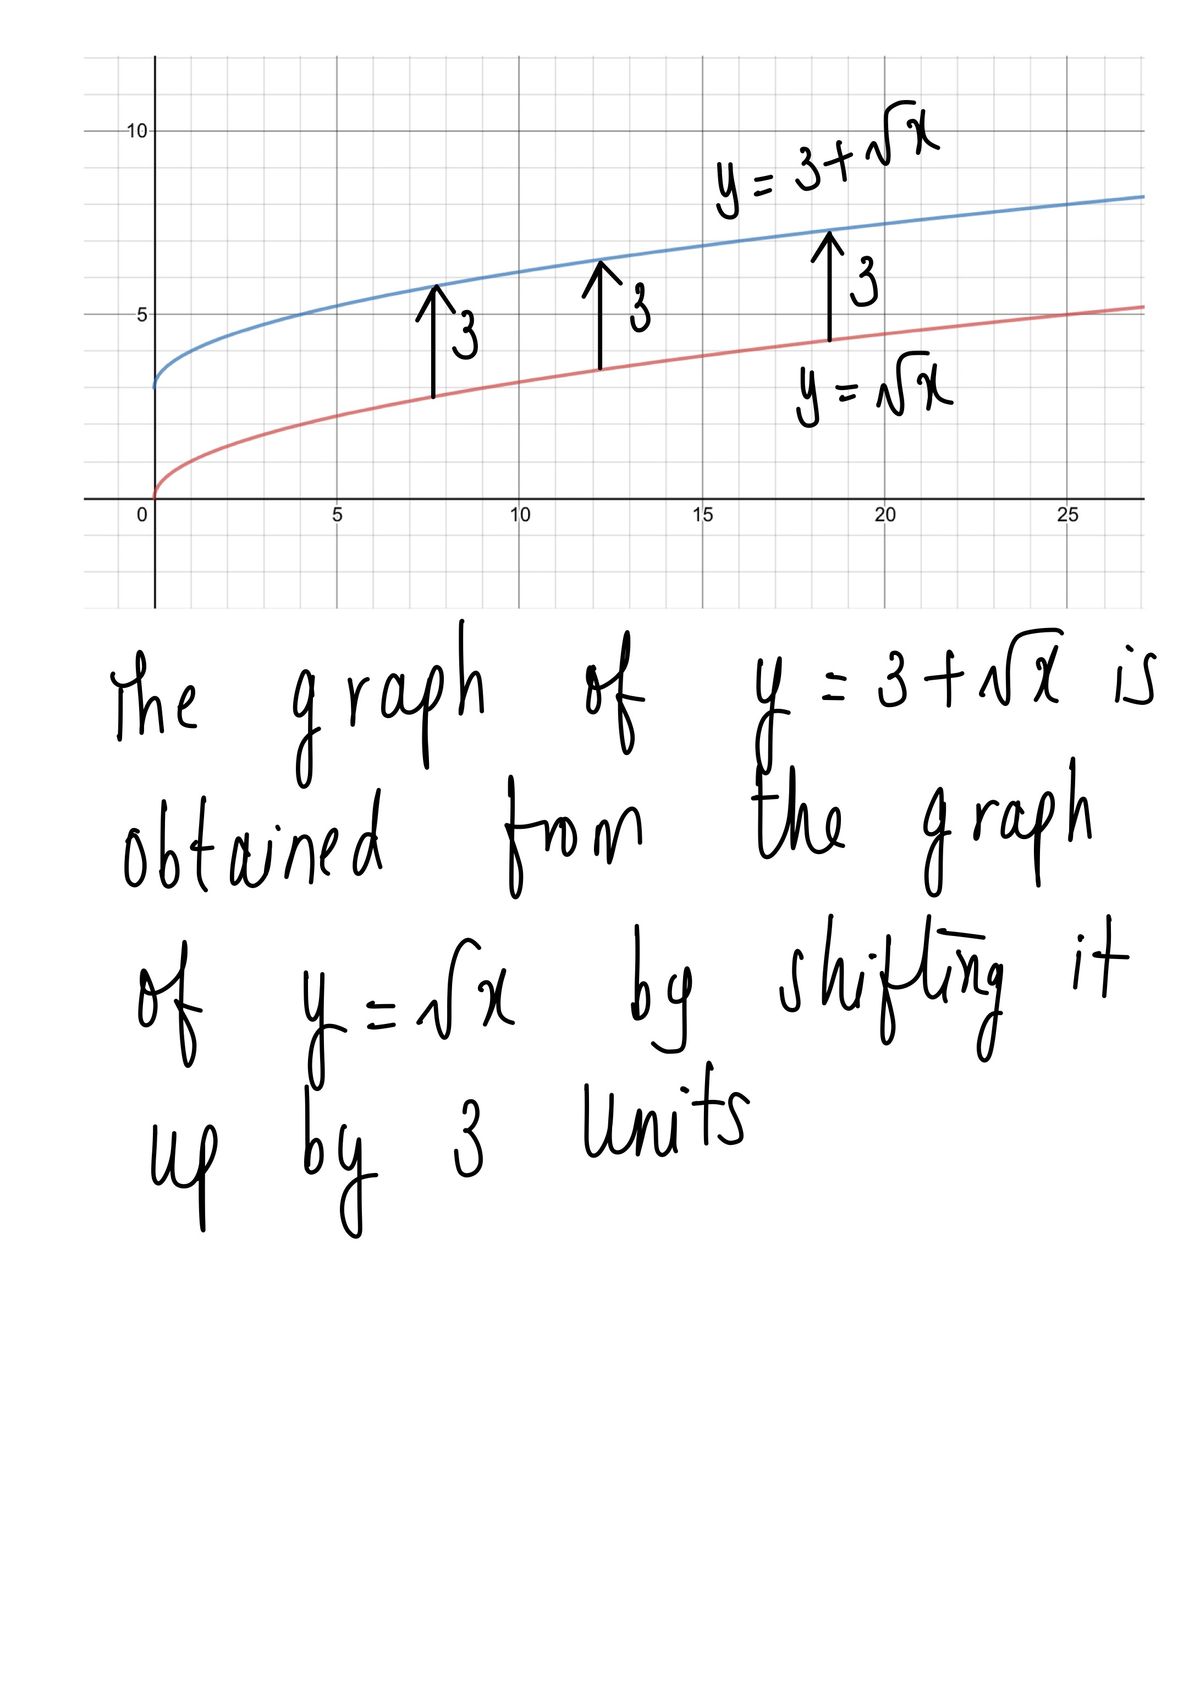 10
y = 3+√x
3
3
3
5
y = √x
0 5 10 15 20 25
The graph of y = 3+√x is
obtained from the graph
of y = √x by shifting it
up by 3 units